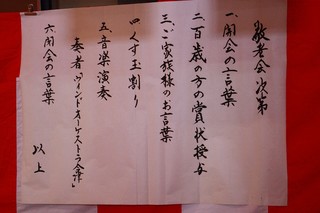 敬老会次第
一、開会の言葉
二、百歳の方の賞状授与
三、ご家族様のお言葉
四、くす玉割り
五、音楽演奏
奏者「ウィンドオーケストラ会津」
六、閉会の言葉
以上